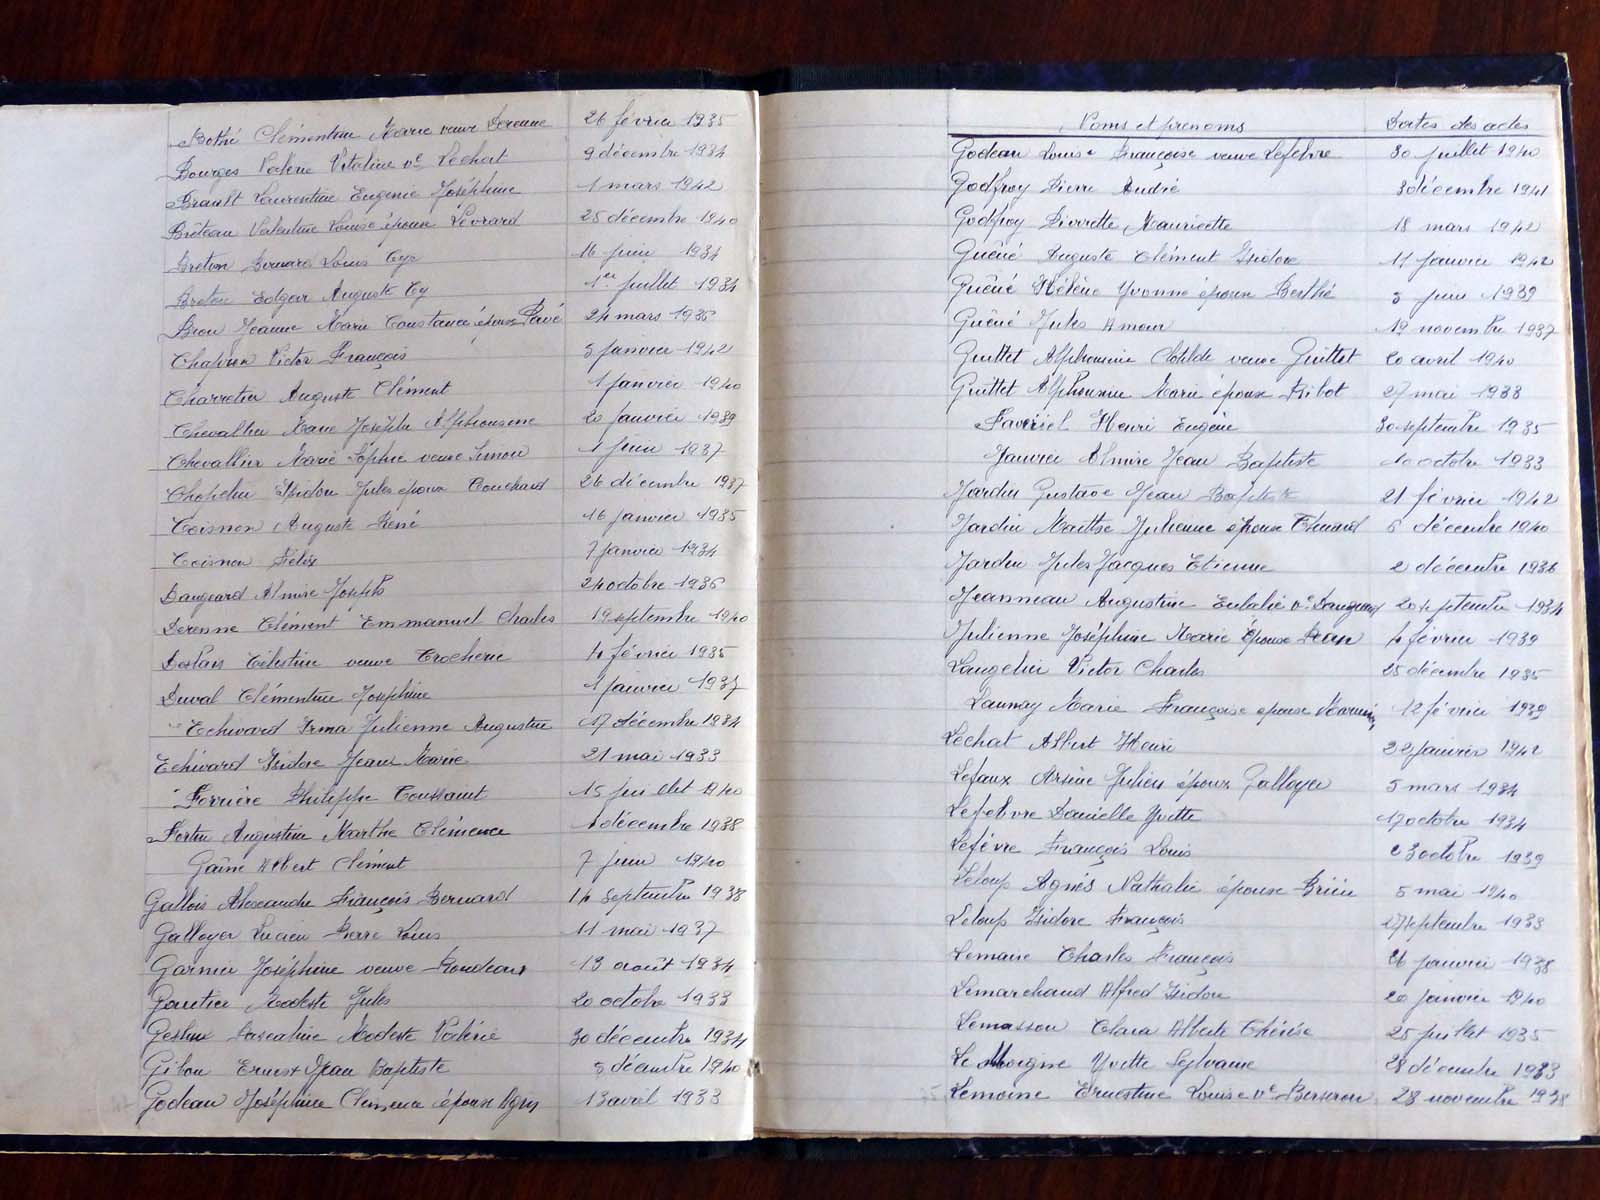 Bothé Clémentine Marie veuve Derenne 26 février 1935
Bourges Valérie Vitaline ve Lechat 9 décembre 1934
Brault Laurentine Eugenie Joséphine 1 mars 1942
Breteau Valentine Louise épouse Levrard 25 décembre 1940
Breton Bernard Louis 16 juin 1934
Breton Edgar Auguste 1er juillet 1934
Brou Jeanne Marie Constance épouse 24 mars 1936
Chapron Victor François 5 janvier 1942
Charretier Auguste Clément 1 janvier 1940
Chevallier Marie Joseph Alphonsine 20 janvier 1939
Chevallier Marie Sophie veuve Simon 1 juin 1937
Chopelin Isidore Jules époux Couchard 26 décembre 1937
Coisnon Auguste René 16 janvier 1935
Coisnon Félix 7 janvier 1934
Daugeard Almire Joseph 24 octobre 1936
Derenne Clément Emmanuel Charles 19 septembre 1940
Deslais Célestine veuve Crocherie 4 février 1935
Duval Clémentine Joséphine 1 janvier 1937
Echivard Irma Julienne Augustine 17 décembre 1934
Echivard Isidore Jean Marie 21 mai 1933
Ferrière Philippe Toussaint 15 juillet 1940
Fortin Augustine Marthe Clémence 1 décembre 1938
Gaîne Albert Clément 7 juin 1940
Gallois Alexandre François Bernard 14 septembre 1938
Galloyer Lucien Pierre Louis 11 mai 1937
Garnier Joséphine veuve Rondeau 13 août 1934
Gautier Modeste Jules 20 octobre 1933
Geslin Pascaline Modeste Valérie 30 décembre 1934
Gilou Ernest Jean Baptiste 5 décembre 1940
Godeau Joséphine Clémence épouse 13 avril 1933
Noms et prénoms Dates des actes
Godeau Louise Françoise veuve Lefebvre 30 juillet 1940
Godfroy Pierre André 3 décembre 1941
Godfroy Pierrette Mauricette 18 mars 1942
Guêné Auguste Clément Isidore 11 janvier 1942
Guêné Hélène Yvonne épouse Berthé 5 juin 1939
Guêné Jules Amour 19 novembre 1937
Guittet Alphonsine Clotilde veuve Guittet 20 avril 1940
Guittet Alphonsine Marie épouse Ribot 27 mai 1938
Faveriel Henri Eugène 30 septembre 1935
Janvier Almire Jean Baptiste 10 octobre 1933
Jardin Gustave Jean Baptiste 21 février 1942
Jardin Marthe Julienne épouse 6 décembre 1940
Jardin Jules Jacques Etienne 2 décembre 1936
Jeanneau Augustine Eulalie ve 20 septembre 1934
Julienne Joséphine Marie épouse 4 février 1939
Langelier Victor Charles 25 décembre 1935
Launay Marie Françoise épouse 12 février 1939
Lechat Albert Henri 22 janvier 1942
Lefaux Arsène Julien époux Galloyer 5 mars 1934
Lefebvre Danielle Yvette 17 octobre 1934
Lefèvre François Louis 23 octobre 1939
Leloup Agnés Nathalie épouse Brière 5 mai 1940
Leloup Isidore François 27 septembre 1933
Lemaire Charles François 26 janvier 1938
Lemarchand Alfred Isidore 20 janvier 1940
Lemasson Clara Alberte Thérèse 25 juillet 1935
Le Moigne Yvette Sylvaine 28 décembre 1933
Lemoine Ernestine Louise ve 28 novembre 1938